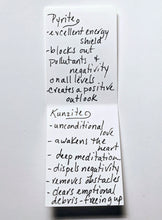 Pyrite
-excellent energy
shield
-blocks out
pollutants &
negativity
on all levels
-creates a positive
outlook
Kunzite
-unconditional
love
-awakens the
heart
-deep meditation
-dispels negativity
-removes obstacles
-clears emotional
debris - freeing up